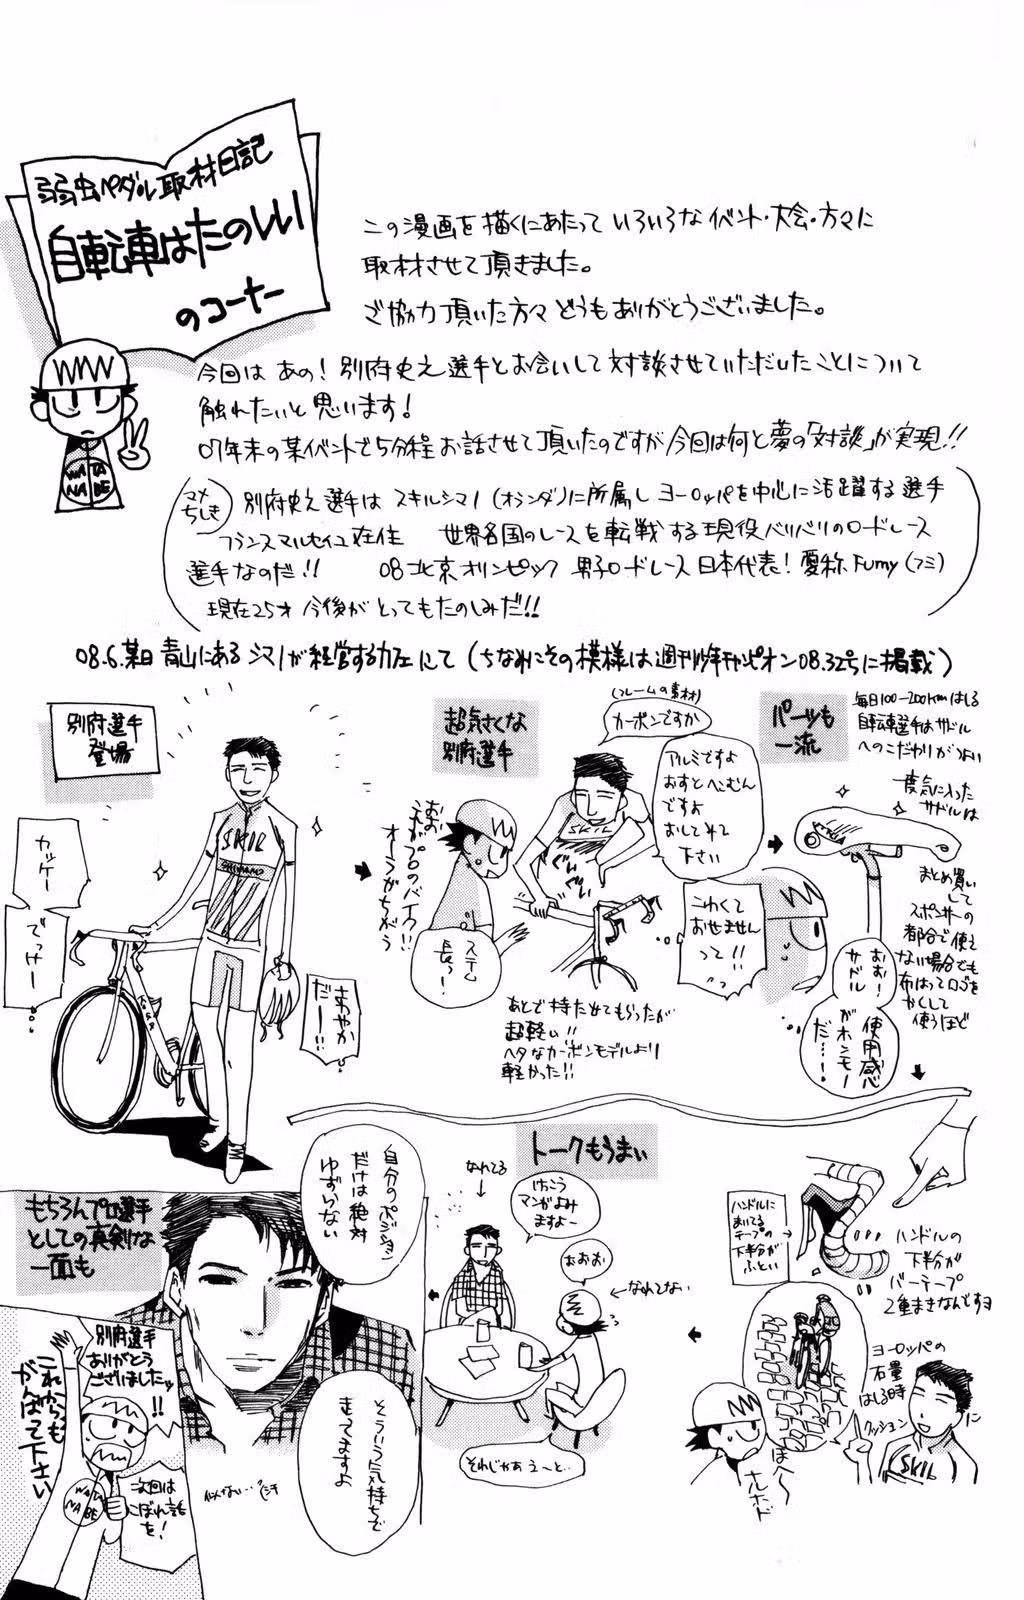 弱虫ペダル取材日記
自転車はたのしい
のコーナー
この漫画を描くにあたって いろいろなイベント・大会・方々に
取材させて頂きました。
ご協力頂いた方々どうもありがとうございました。
今回は あの! 別府史之選手とお会いして対談させていただいたことについて
触れたいと思います!
07年末の某イベントで5分程お話させて頂いたのですが今回は何と夢の「対談」が実現!!
マメ
ちしき
別府史之選手は スキルシマノ(オランダ)に所属し ヨーロッパを中心に活躍する選手
フランスマルセイユ在住 世界各国のレースを転戦する現役バリバリのロードレース
選手なのだ!! 08北京オリンピック 男子ロードレース日本代表! 愛称Fumy(フミ)
現在25才 今後がとってもたのしみだ!!
08.6.某日 青山にあるシマノが経営するカフェにて(ちなみにその模様は週刊少年チャンピオン08.32号に掲載)
別府選手
登場
カッケー
でっけー
SKIL
SHIMANO
さわやか
だー!!
超気さくな
別府選手
(フレームの素材)
カーボンですか
アルミですよ
おすとへこむん
ですよ
おしてみて
下さい
SKIL
おお
これがプロのバイク!!
オーラがちがう
ステム
長っ!
こわくて
おせません
って!!
あとで持たせてもらったが
超軽い!!
ヘタなカーボンモデルより
軽かった!!
パーツも
一流
毎日100-200kmはしる
自転車選手はサドル
へのこだわりがつよい
一度気に入った
サドルは
まとめ買い
して
スポンサーの
都合で使え
ない場合でも
布はってロゴを
かくして
使うほど
おお!
サドル
使用感
がホンモノ
だ…!
ハンドルに
まいてる
テープの
下半分が
ふとい
ハンドルの
下半分が
バーテープ
2重まきなんですヨ
ヨーロッパの
石畳
はしる時
クッションに
SKIL
ほへ〜
ナルホド
トークもうまい
なれてる
けっこう
マンガよみ
ますよー
おおお
なれてない
それじゃあ えーと…
もちろんプロ選手
としての真剣な
一面も
自分のポジション
だけは絶対
ゆずらない
そういう気持ちで
走ってますよ
似てない…
別府選手
ありがとう
ございましたッ
!!
これからも
がんばって下さい
次回は
こぼれ話
を!
WATA
NABE